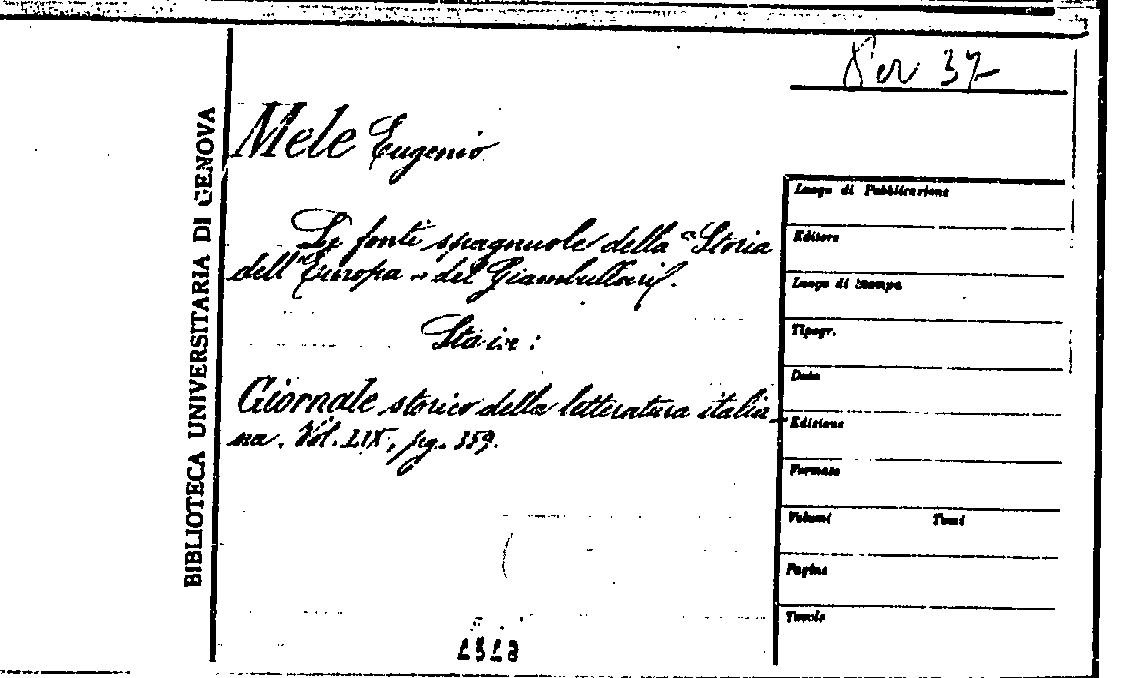 Per 37
BIBLIOTECA UNIVERSITARIA DI GENOVA
Mele Eugenio
Le fonti spagnuole della "Storia
dell'Europa" del Giambullari.
Sta in:
Giornale storico della letteratura italia-
na. Vol. LIX, pg. 359.
Luogo di Pubblicazione
Editore
Luogo di stampa
Tipogr.
Data
Edizione
Formato
Volumi Tomi
Pagine
Tavole